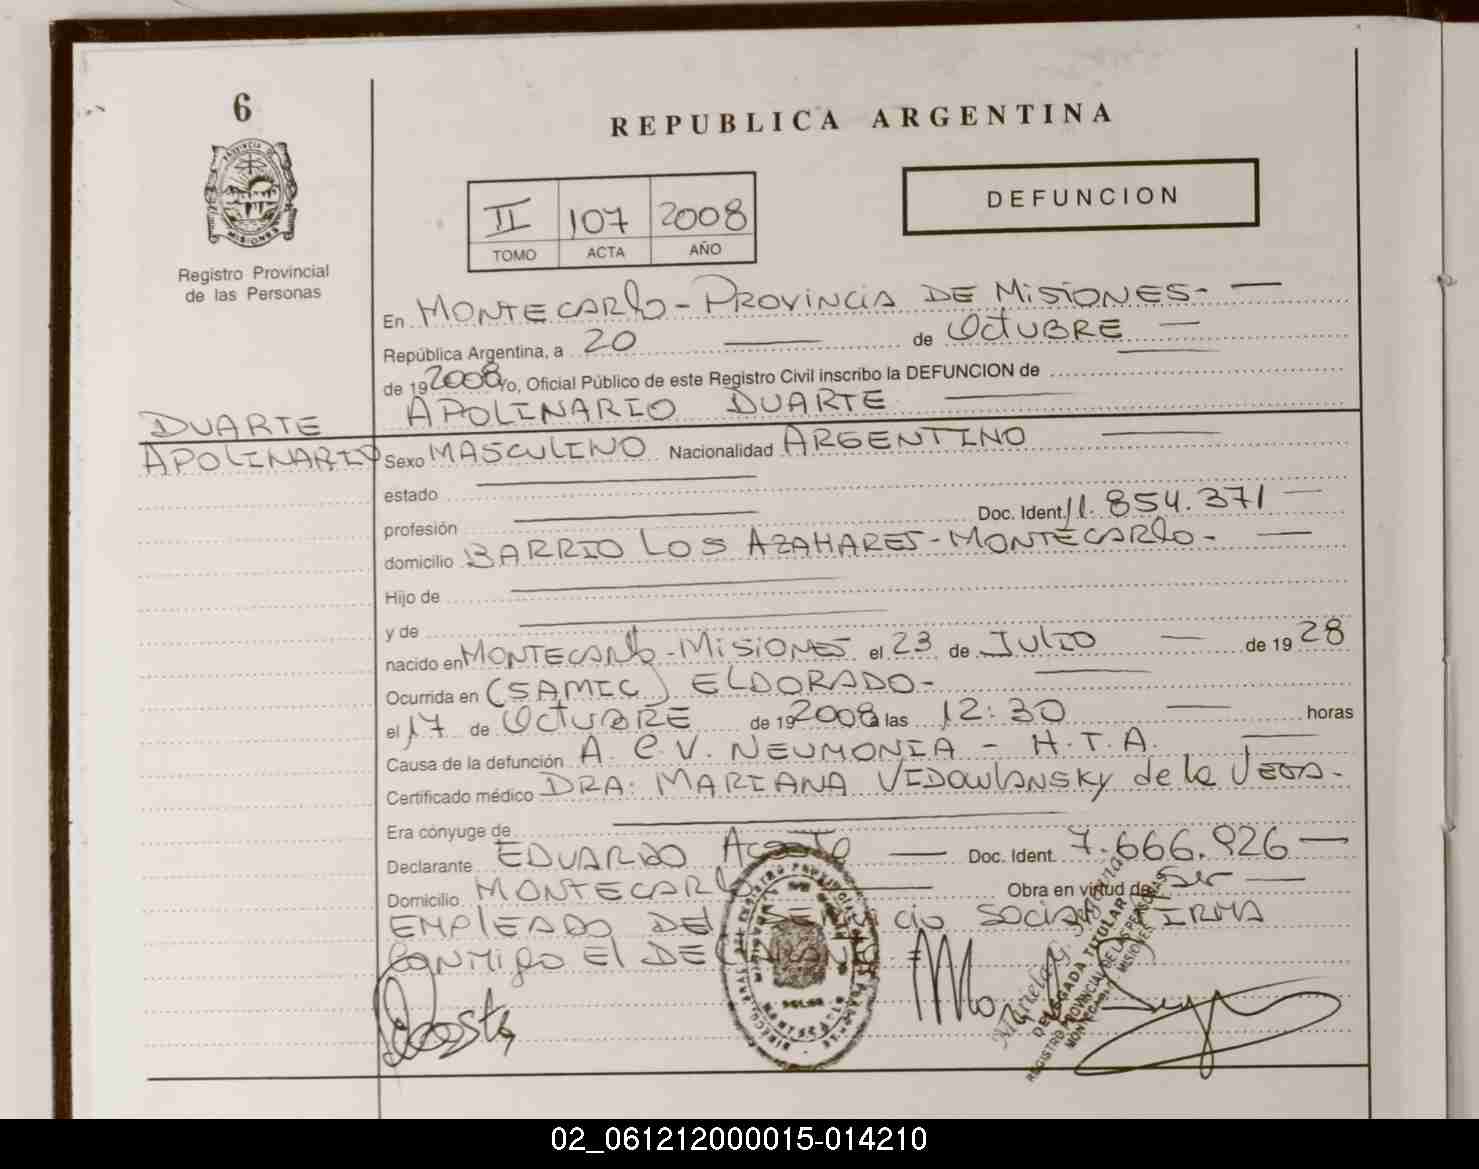 6
PROVINCIA DE
MISIONES
Registro Provincial
de las Personas
REPUBLICA ARGENTINA
II 107 2008
TOMO ACTA AÑO
DEFUNCION
En MONTECARlo - PROVINCIA DE MISIONES -
República Argentina, a 20 de OctUBRE
de 19 2008 Yo, Oficial Público de este Registro Civil inscribo la DEFUNCION de
APOLINARIO DUARTE
DUARTE
APOLINARIO
Sexo MASCULINO Nacionalidad ARGENTINO
estado
profesión Doc. Ident. 11.854.371
domicilio BARRIO LOS AZAHARES - MONTECARlo -
Hijo de
y de
nacido en MONTECARlo - MISIONES el 23 de JULIO de 19 28
Ocurrida en (SAMIC) ELDORADO -
el 17 de OctUBRE de 19 2008 a las 12:30 horas
Causa de la defunción A.C.V. NEUMONIA - H.T.A.
Certificado médico DRA: MARIANA VIDOWLANSKY de la VEGA -
Era cónyuge de
Declarante EDUARDO Acosta Doc. Ident. 7.666.926
Domicilio MONTECARlo Obra en virtud de Ser
EMPLEADO DEL SERVICIO SOCIAL FIRMA
CONMIGO El DECLARANTE
Acosta
DELEGADA TITULAR
REGISTRO PROVINCIAL DE LAS PERSONAS
MONTECARLO MISIONES
02_061212000015-014210